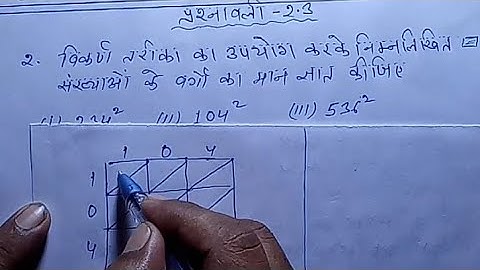 प्रश्नावली - 2.3
2. विकर्ण तरीका का उपयोग करके निम्नलिखित
संख्याओं के वर्गों का मान ज्ञात कीजिए
(II) 104² (III) 536²
1 0 4
1
0
4